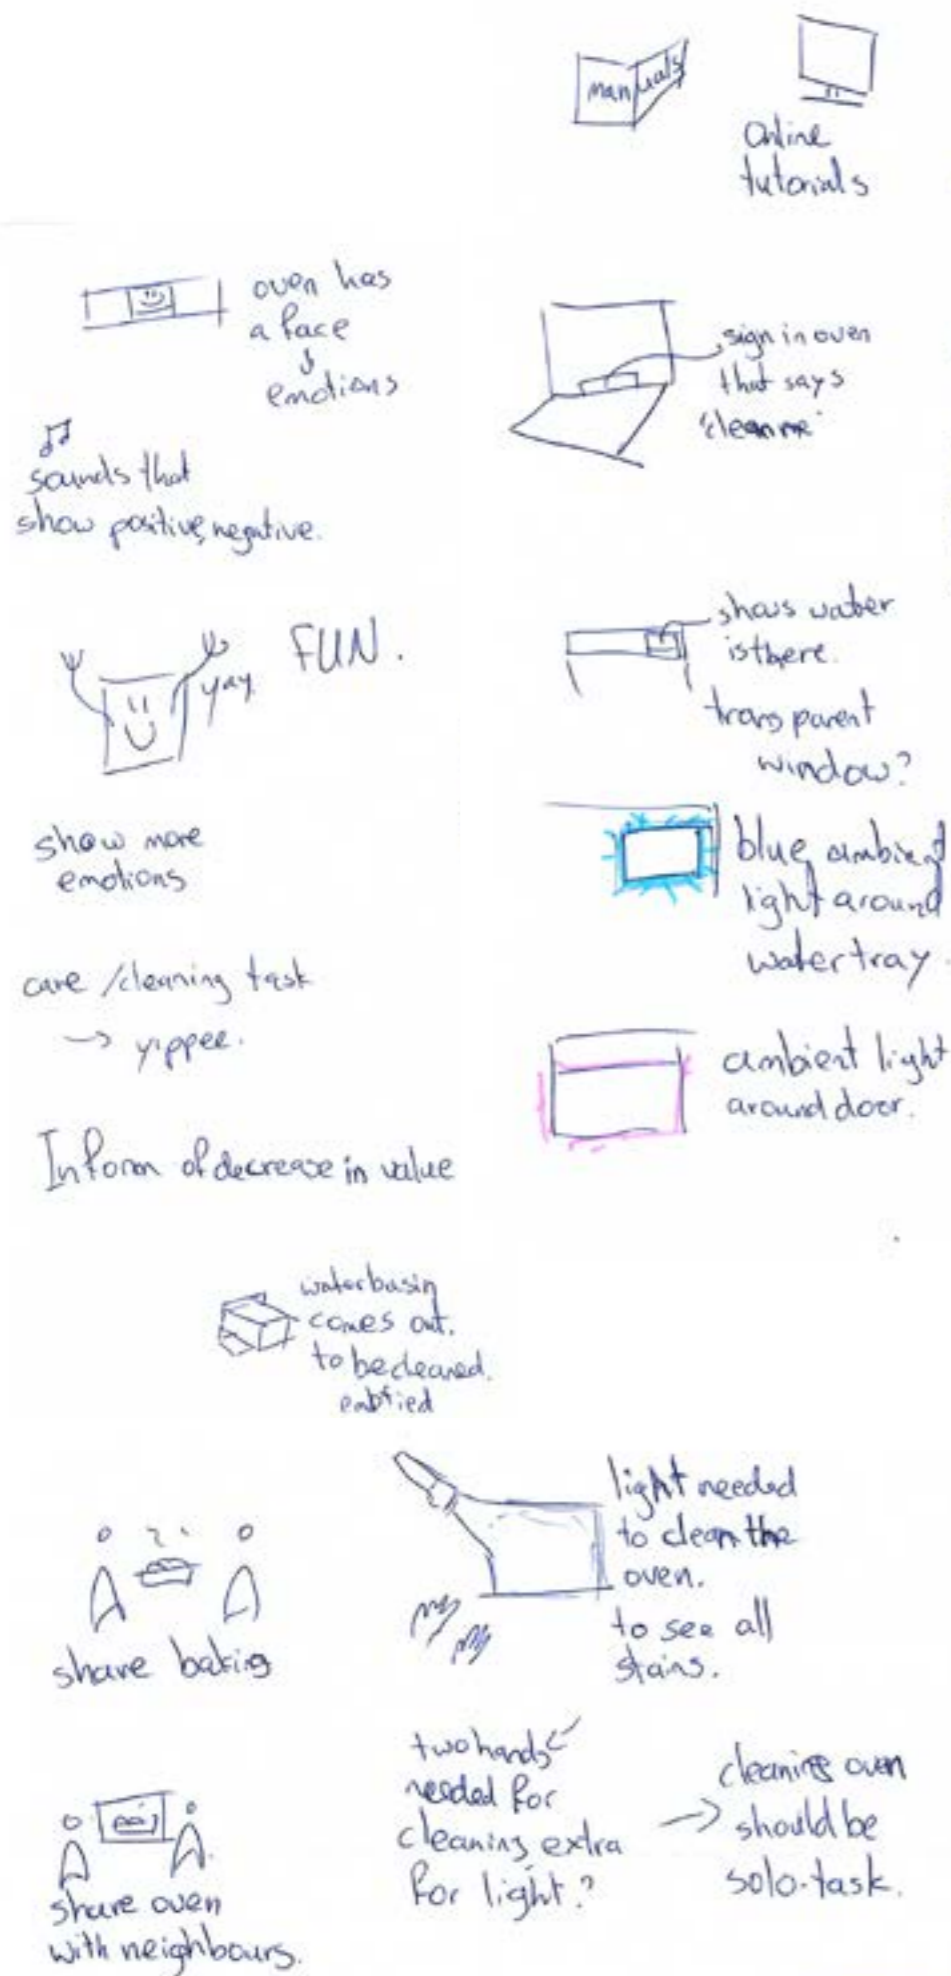 manuals
Online
tutorials
oven has
a face
emotions
sign in oven
that says
'clean me'
sounds that
show positive, negative.
FUN.
yay
shows water
is there.
transparent
window?
show more
emotions
blue ambient
light around
water tray.
care / cleaning task
→ yippee.
ambient light
around door.
Inform of decrease in value
waterbasin
comes out.
to be cleaned.
light needed
to clean the
oven.
to see all
stains.
share baking
two hands
needed for
cleaning extra
for light?
→ cleaning oven
should be
solo-task.
share oven
with neighbours.